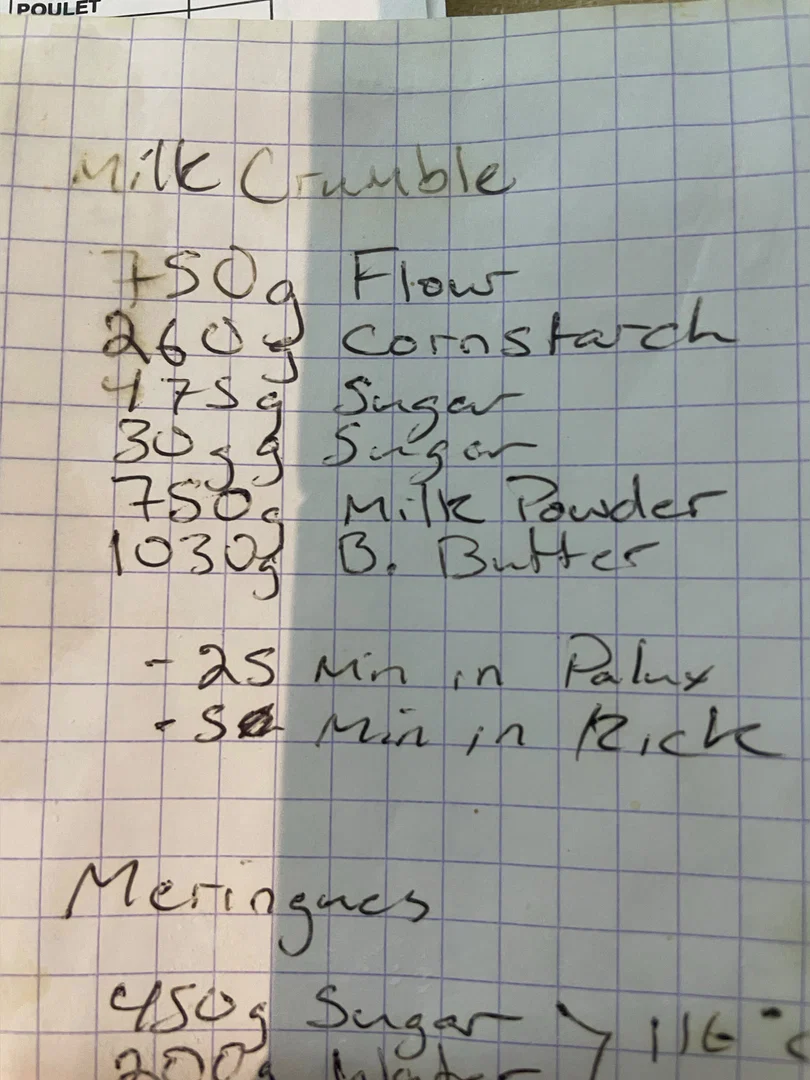 POULET
Milk Crumble
750g Flour
260g Cornstarch
475g Sugar
30g g Sugar
750g Milk Powder
1030g B. Butter
- 25 Min in Palux
- 5 Min in Rick
Meringues
450g Sugar > 116°C
200g Water